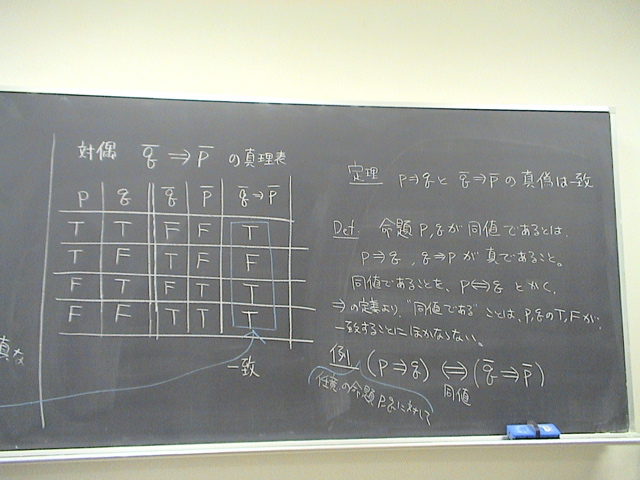 対偶 q̄ ⇒ p̄ の真理表
p q q̄ p̄ q̄⇒p̄
T T F F T
T F T F F
F T F T T
F F T T T
一致
真な
定理 p⇒qと q̄⇒p̄ の真偽は一致
Def. 命題 p,qが同値であるとは、
p⇒q , q⇒p が真であること。
同値であることを、p⇔q とかく。
⇒の定義より、"同値である"ことは、p,qのT,Fが、
一致することにほかならない。
例 (p⇒q) ⇔ (q̄⇒p̄)
同値
任意の命題p,qに対して